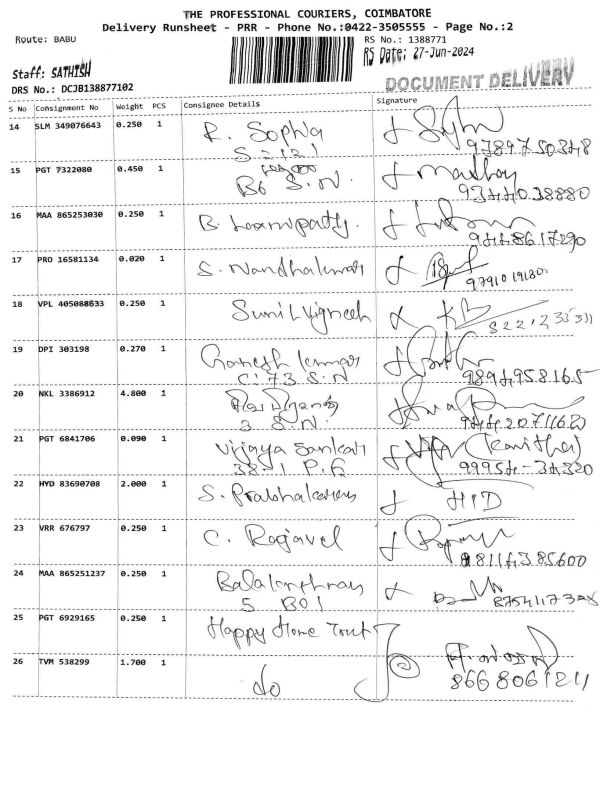 THE PROFESSIONAL COURIERS, COIMBATORE
Delivery Runsheet - PRR - Phone No.:0422-3505555 - Page No.:2
Route: BABU
RS No.: 1388771
RS Date: 27-Jun-2024
Staff: SATHISH
DOCUMENT DELIVERY
DRS No.: DCJB138877102
S No Consignment No Weight PCS Consignee Details Signature
14 SLM 349076643 0.250 1 R. Sophia
S-121
9789750348
15 PGT 7322080 0.450 1
B6 S.N. Madhay
9344038880
16 MAA 865253030 0.250 1 B. Laxmipathy.
9448617290
17 PRO 16581134 0.020 1 S. Nandhakumar
9791019180
18 VPL 405088633 0.250 1 Sunil Vignesh
19 DPI 303198 0.270 1 Ganesh kumar
C. 73 S.N
9894958165
20 NKL 3386912 4.800 1
3 S.N.
9442071162
21 PGT 6841706 0.090 1 Vijaya Sankar (Kavitha)
38-1 P.G 99954-34320
22 HYD 83690708 2.000 1 S. Prabhakaran HID
23 VRR 676797 0.250 1 C. Rajavel
8114385600
24 MAA 865251237 0.250 1
5 B01
25 PGT 6929165 0.250 1 Happy Home Trust
26 TVM 538299 1.700 1 do
8668061211